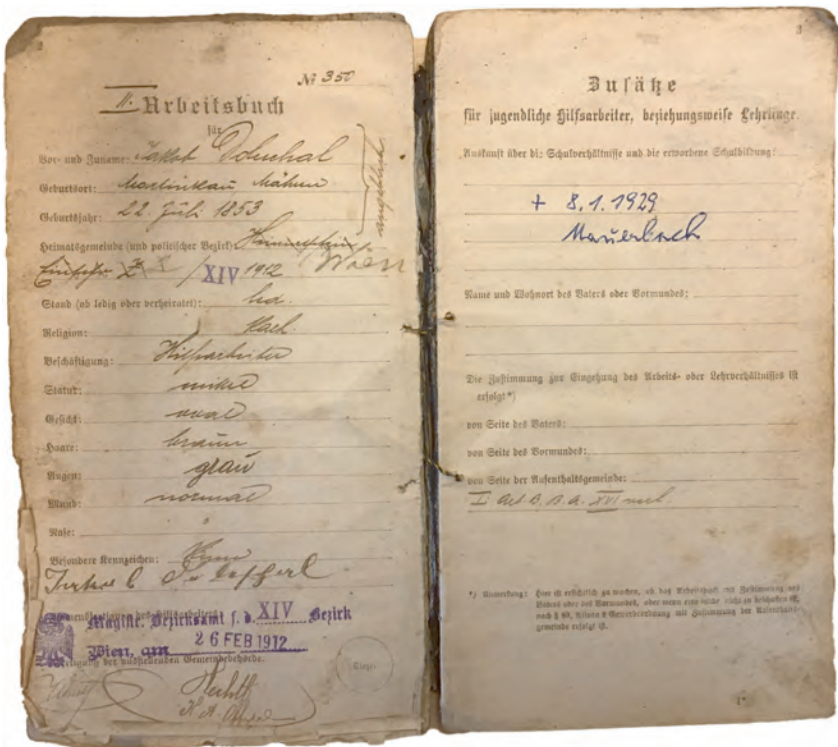 2
№ 350
II. Arbeitsbuch
für
Vor- und Zuname: Jakob
Geburtsort: Mähren
Geburtsjahr: 22. Juli 1853
Heimatsgemeinde (und politischer Bezirk):
XIV 1912 Wien
Stand (ob ledig oder verheiratet): led.
Religion: kath.
Beschäftigung: Hilfsarbeiter
Statur: mittel
Gesicht: oval
Haare: braun
Augen: grau
Mund: normal
Nase:
Besondere Kennzeichen: Keine
Namensfertigung des Hilfsarbeiters:
Magist. Bezirksamt f. d. XIV Bezirk
Wien, am 26 FEB 1912
Fertigung der ausstellenden Gemeindebehörde.
(Siegel)
3
Zusätze
für jugendliche Hilfsarbeiter, beziehungsweise Lehrlinge.
Auskunft über die Schulverhältnisse und die erworbene Schulbildung:
+ 8.1.1929
Mauerbach
Name und Wohnort des Vaters oder Vormundes:
Die Zustimmung zur Eingehung des Arbeits- oder Lehrverhältnisses ist
erfolgt*)
von Seite des Vaters:
von Seite des Vormundes:
von Seite der Aufenthaltsgemeinde:
XVI
*) Anmerkung: Hier ist ersichtlich zu machen, ob das Arbeitsbuch mit Zustimmung des
Vaters oder des Vormundes, oder wenn eine solche nicht zu beschaffen ist,
nach § 80, Alinea Gewerbeordnung mit Zustimmung der Aufenthalts-
gemeinde erfolgt ist.
1*